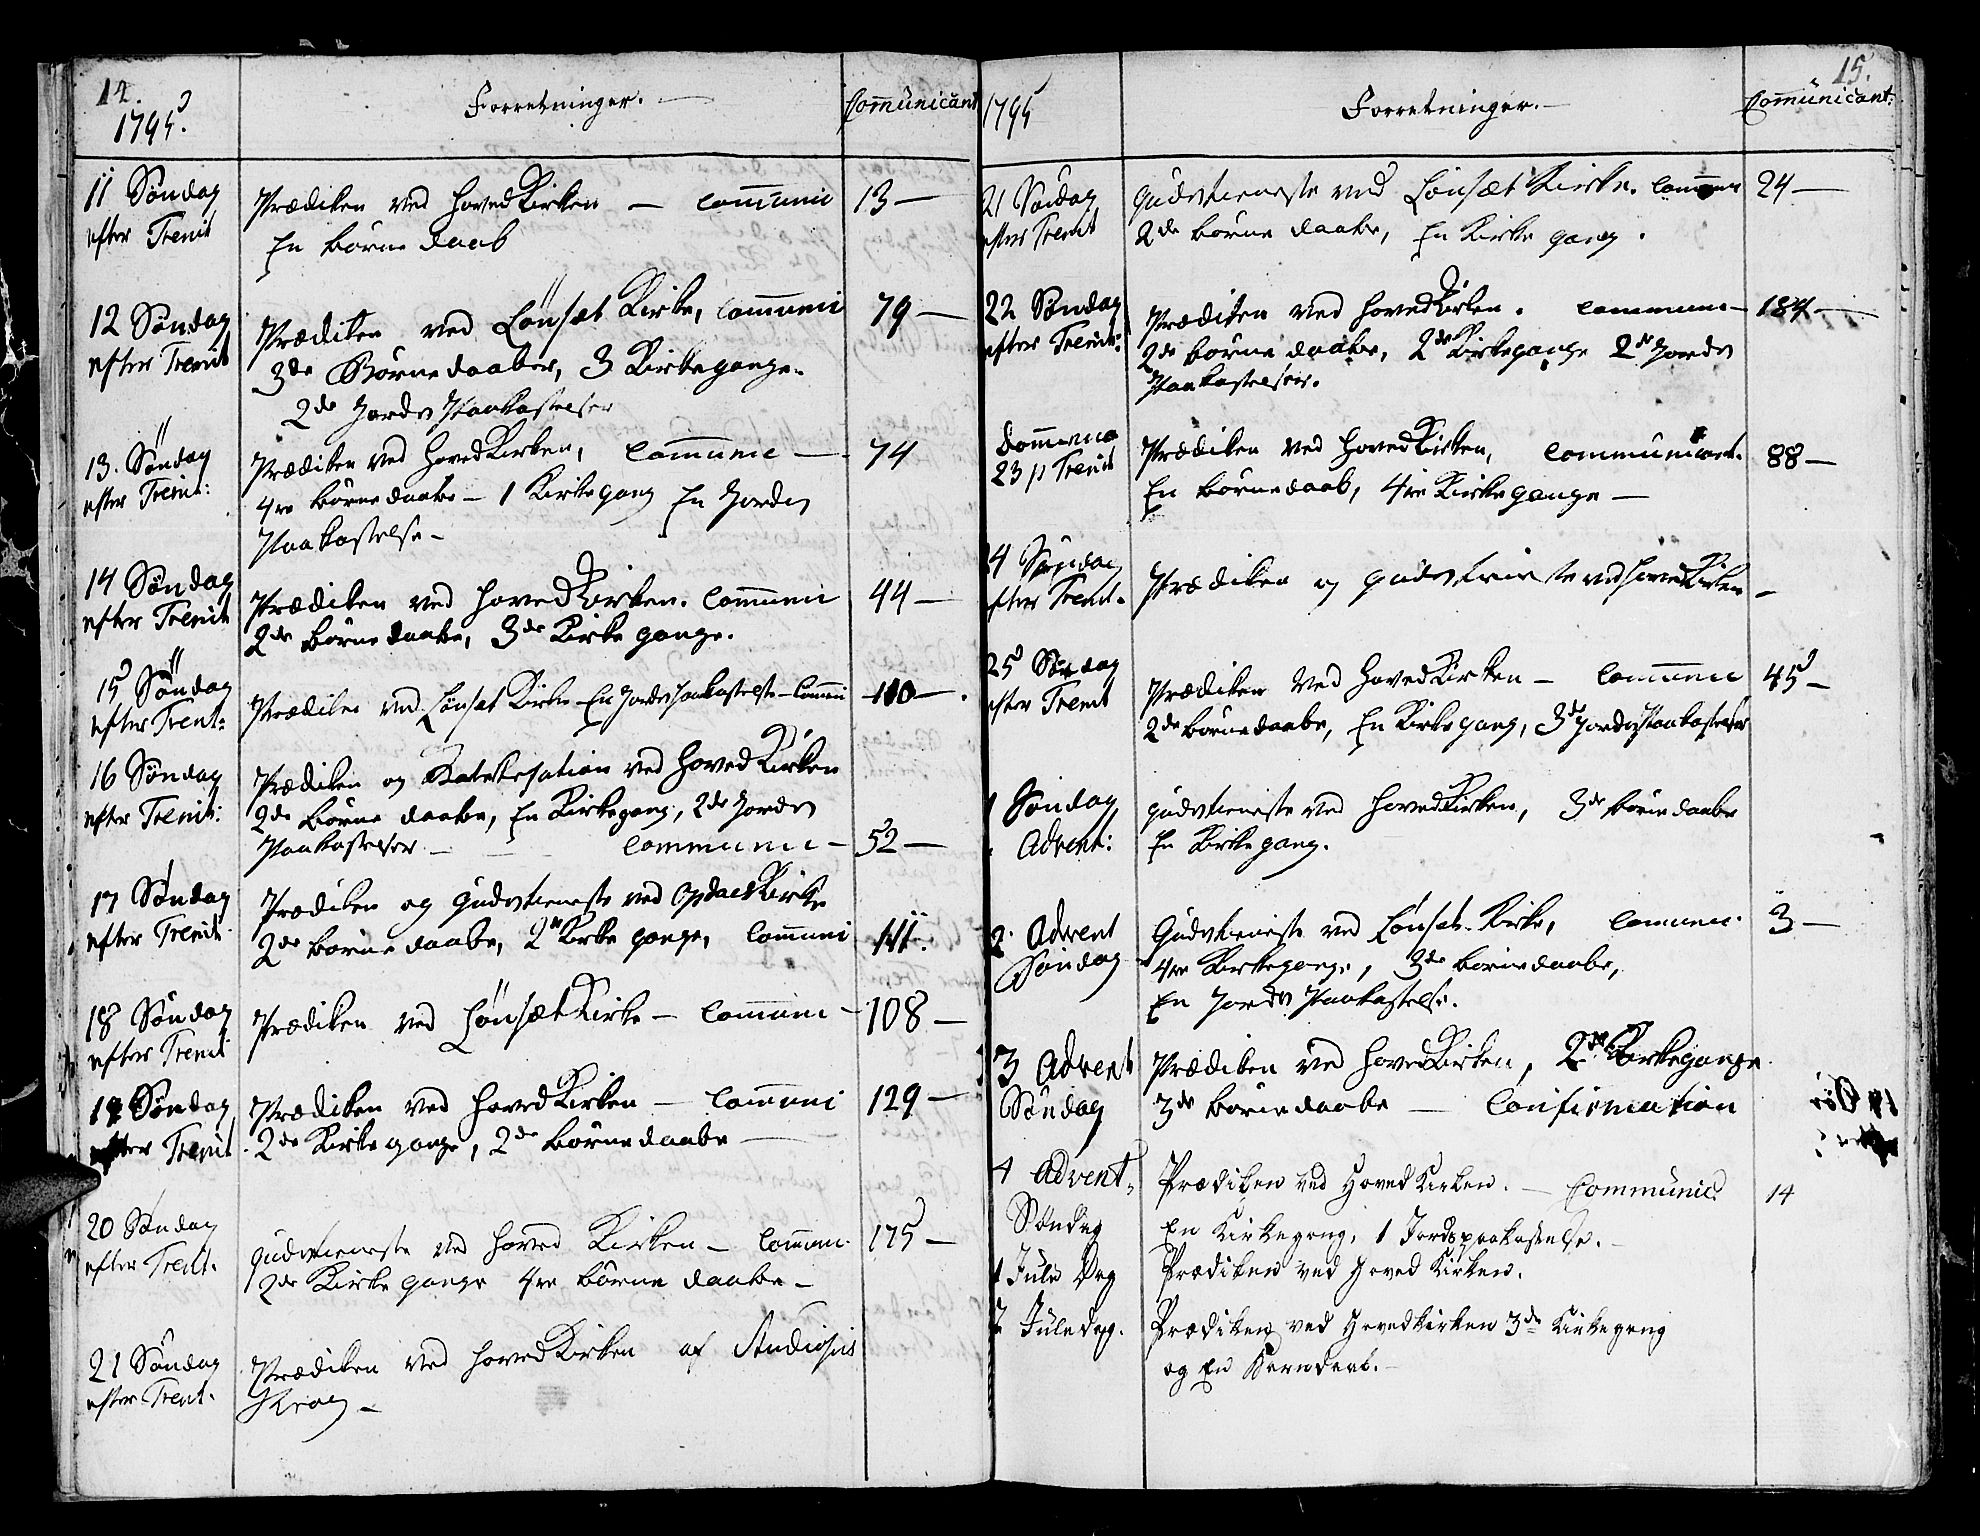 14.
1795.
Forretninger.
Communicant
11 Søndag
efter Trenit
Prædiken ved Hoved Kirken — Communic 13 —
En børne daab
12 Søndag
efter Trenit
Prædiken ved Lønset Kirke, Communi 79 —
3de Børnedaaber, 3 Kirkegange.
2de Jords Paakastelser
13. Søndag
efter Trenit:
Prædiken ved Hoved Kirken, Communic — 74
4re børnedaabe — 1 Kirkegang En Jords
Paakastelse —
14 Søndag
efter Trenit
Prædiken ved Hoved Kirken. Communi 44 —
2de børnedaabe, 3de Kirkegange.
15 Søndag
efter Trent:
Prædiken ved Lønset Kirke En Jords Paakastelse — Communi 110 —
16 Søndag
efter Trenit:
Prædiken og Katekesation ved Hoved Kirken
2de børne daabe, En Kirkegang, 2de Jords
Paakastelser — Communi — 52 —
17 Søndag
efter Trenit
Prædiken og Gudstieneste ved Opdals Kirke
2de børnedaabe, 2de Kirkegange, Communi 141.
18 Søndag
efter Trenit
Prædiken ved Lønsæt Kirke — Communi — 108 —
19 Søndag
efter Trenit
Prædiken ved Hoved Kirken — Communi 129 —
2de Kirkegange, 2de børnedaabe —
20 Søndag
efter Trent.
Gudstieneste ved Hoved Kirken — Communi. 175 —
2de Kirkegange 4re børne daabe —
21 Søndag
efter Trent.
Prædiken ved Hoved Kirken af Studiosus
Krog —
15.
1795
Forretninger.
Communicant:
21 Søndag
efter Trenit
Gudstieneste ved Lønsæt Kirke. Commun 24 —
2de børne daabe, En Kirkegang.
22 Søndag
efter Trenit:
Prædiken ved Hoved Kirken. Communi — 184 —
2de børne daabe, 2de Kirkegange 2de Jords
Paakastelser.
Dommenca
23 p Trenit
Prædiken ved Hoved Kirken, Communicant. 88 —
En børnedaab, 4re Kirkegange —
4 Søndag
efter Trenit.
Prædiken og Gudstieneste ved Hoved Kirken —
25 Søndag
efter Trenit
Prædiken ved Hoved Kirken — Communi 45 —
2de børnedaabe, En Kirkegang, 3de Jords Paakastelser
1 Søndag
Advent:
Gudstieneste ved Hoved Kirken, 3de børnedaabe
En Kirkegang.
2. Advent
Søndag
Gudstieneste ved Lønset Kirke, Communi. 3 —
4re Kirkegange, 3de børnedaabe,
En Jords Paakastelse.
3 Advent
Søndag
Prædiken ved Hoved Kirken, 2de Kirkegange
3de børnedaabe — Confirmation
4 Advent
Søndag
Prædiken ved Hoved Kirken. — Communic. 14
En Kirkegang, 1 Jordspaakastelse. —
1 Jule Dag
Prædiken ved Hoved Kirken.
2 Juledag.
Prædiken ved Hovedkirken 3de Kirkegang
og En Barndaab. —